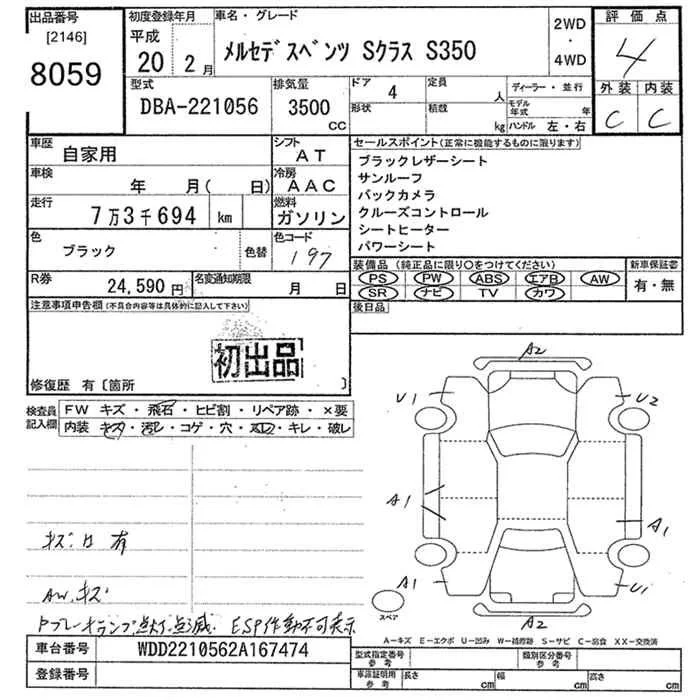 出品番号
[2146]
8059
初度登録年月
平成
20 2月
車名・グレード
メルセデスベンツ Sクラス S350
2WD
・
4WD
評価点
4
外装 内装
C C
型式
DBA-221056
排気量
3500
CC
ドア
4
形状
定員
人
積載
kg
ディーラー・並行
モデル年式 年
ハンドル 左・右
車歴
自家用
シフト
AT
車検
年 月( 日)
冷房
AAC
走行
7万3千694 km
燃料
ガソリン
色
ブラック
色替
色コード
197
R券
24,590円
名変通知期限
月 日
セールスポイント(正常に機能するものに限ります)
ブラックレザーシート
サンルーフ
バックカメラ
クルーズコントロール
シートヒーター
パワーシート
装備品 (純正品に限り○をつけてください)
PS PW ABS エアB AW
SR ナビ TV カワ
新車保証書
有・無
後日品
注意事項申告欄(不具合内容等は具体的に記入して下さい)
初出品
修復歴 有〔箇所 〕
検査員記入欄
FW キズ・飛石・ヒビ割・リペア跡・×要
内装 キズ・汚レ・コゲ・穴・スレ・キレ・破レ
キズ・凹 有
AW.キズ
ブレーキランプ点灯、点滅. ESP作動不可表示
A2
U1
U2
A1
A1
A1
U1
A2
スペア
A-キズ E-エクボ U-凹み W-補修跡 S-サビ C-腐食 XX-交換済
車台番号
WDD2210562A167474
登録番号
型式指定番号
参考
類別区分番号
参考
車庫証明用
参考
長さ cm
幅 cm
高さ cm